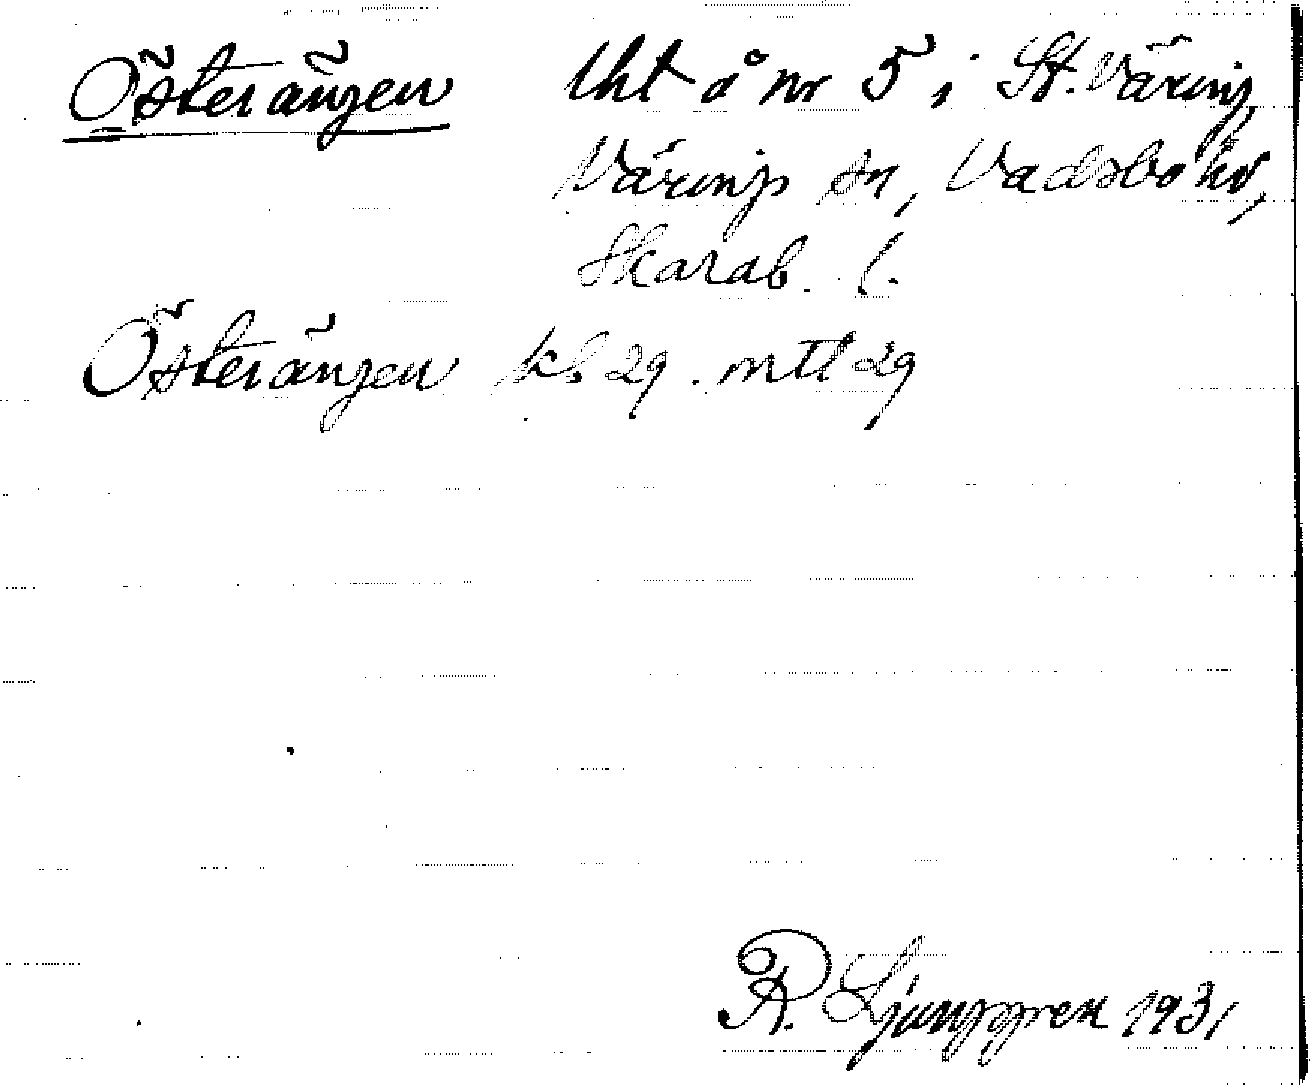 Österängen Uht å nr 5 i St. Väring,
Värings sn, Vadsbo hd,
Skarab. l.
Österängen kb 29. mtl 29
R. Ljunggren 1931